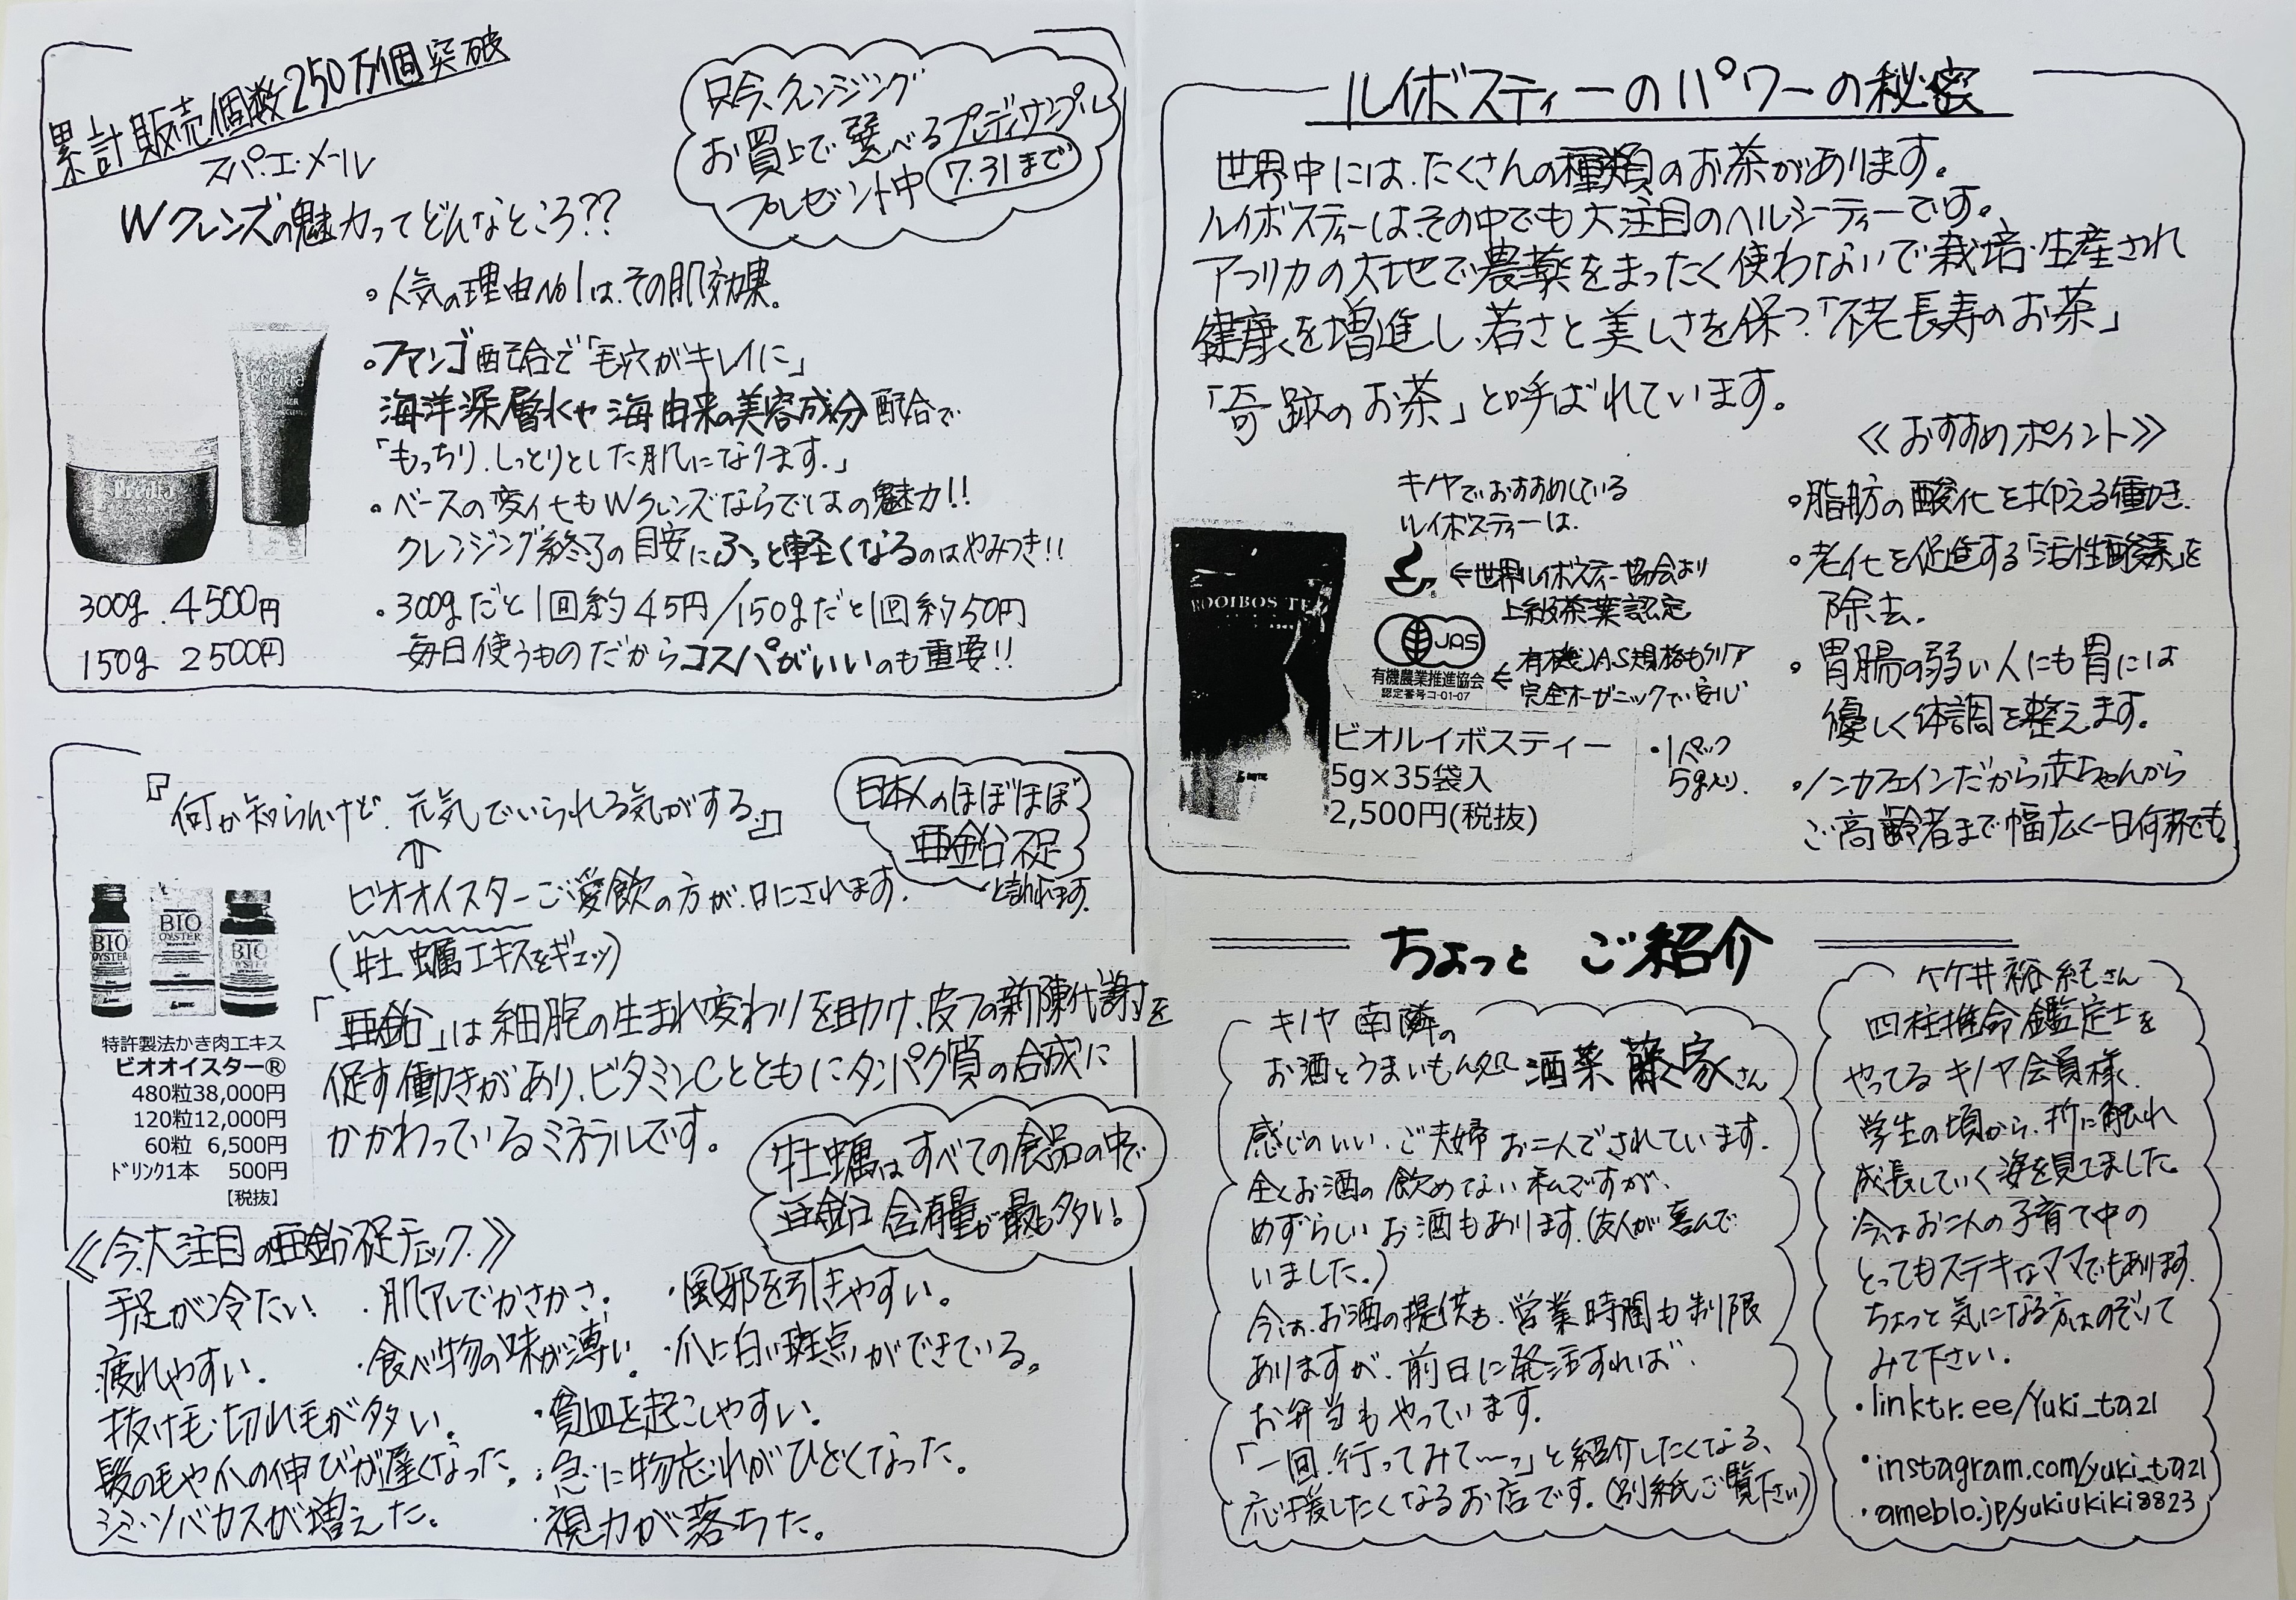 累計販売個数250万個突破
スパ・エ・メール
Wクレンズの魅力ってどんなところ??
只今、クレンジング
お買上で選べるプレディアサンプル
プレゼント中 7.31まで
。人気の理由No1は、その肌効果。
。ファンゴ配合で「毛穴がキレイに」
海洋深層水や海由来の美容成分配合で
「もっちり、しっとりとした肌になります。」
。ベースの変化もWクレンズならではの魅力!!
クレンジング終了の目安にふっと軽くなるのはやみつき!!
・300gだと1回約45円/150gだと1回約50円
毎日使うものだからコスパがいいのも重要!!
Predia
Predia
300g 4500円
150g 2500円
『何か知らんけど、元気でいられる気がする。』
日本人のほぼほぼ
亜鉛不足
と言われます。
ビオオイスターご愛飲の方が口にされます。
(牡蠣エキスをギュッ)
「亜鉛」は細胞の生まれ変わりを助け、皮フの新陳代謝を
促す働きがあり、ビタミンCとともにタンパク質の合成に
かかわっているミネラルです。
BIO
OYSTER
BIO
OYSTER
BIO
OYSTER
特許製法かき肉エキス
ビオオイスター®
480粒38,000円
120粒12,000円
60粒 6,500円
ドリンク1本 500円
【税抜】
牡蠣はすべての食品の中で
亜鉛含有量が最も多い!
《今、大注目の亜鉛不足チェック》
手足が冷たい ・肌アレでかさかさ。 ・風邪を引きやすい。
疲れやすい。 ・食べ物の味が薄い。 ・爪に白い斑点ができている。
抜け毛・切れ毛が多い。 ・貧血を起こしやすい。
髪の毛や爪の伸びが遅くなった。 ・急に物忘れがひどくなった。
シミ・ソバカスが増えた。 ・視力が落ちた。
ルイボスティーのパワーの秘密
世界中には、たくさんの種類のお茶があります。
ルイボスティーは、その中でも大注目のヘルシーティーです。
アフリカの大地で農薬をまったく使わないで栽培・生産され
健康を増進し、若さと美しさを保つ「不老長寿のお茶」
「奇跡のお茶」と呼ばれています。
《おすすめポイント》
。脂肪の酸化を抑える働き。
・老化を促進する「活性酸素」を
除去。
・胃腸の弱い人にも胃には
優しく体調を整えます。
・ノンカフェインだから赤ちゃんから
ご高齢者まで幅広く一日何杯でも。
キノヤでおすすめしている
ルイボスティーは、
⇐世界ルイボスティー協会より
上級茶葉認定
JAS
有機農業推進協会
認定番号コ-01-07
⇐有機JAS規格もクリア
完全オーガニックで安心
ROOIBOS TEA
ビオルイボスティー
5g×35袋入
2,500円(税抜)
・1パック
5g入り。
ちょっと ご紹介
キノヤ南隣の
お酒とうまいもん処 酒菜 藤家さん
感じのいい、ご夫婦お二人でされています。
全くお酒の飲めない私ですが、
めずらしいお酒もあります。(友人が喜んで
いました。)
今は、お酒の提供も、営業時間も制限
ありますが、前日に発注すれば、
お弁当もやっています。
「一回、行ってみて〜っ」と紹介したくなる、
応援したくなるお店です。(別紙ご覧下さい)
竹井裕紀さん
四柱推命鑑定士を
やってるキノヤ会員様。
学生の頃から、折に触れ
成長していく姿を見てました。
今はお二人の子育て中の
とってもステキなママでもあります。
ちょっと気になる方はのぞいて
みて下さい。
・linktr.ee/Yuki_ta21
・instagram.com/yuki_ta21
・ameblo.jp/yukiukiki8823